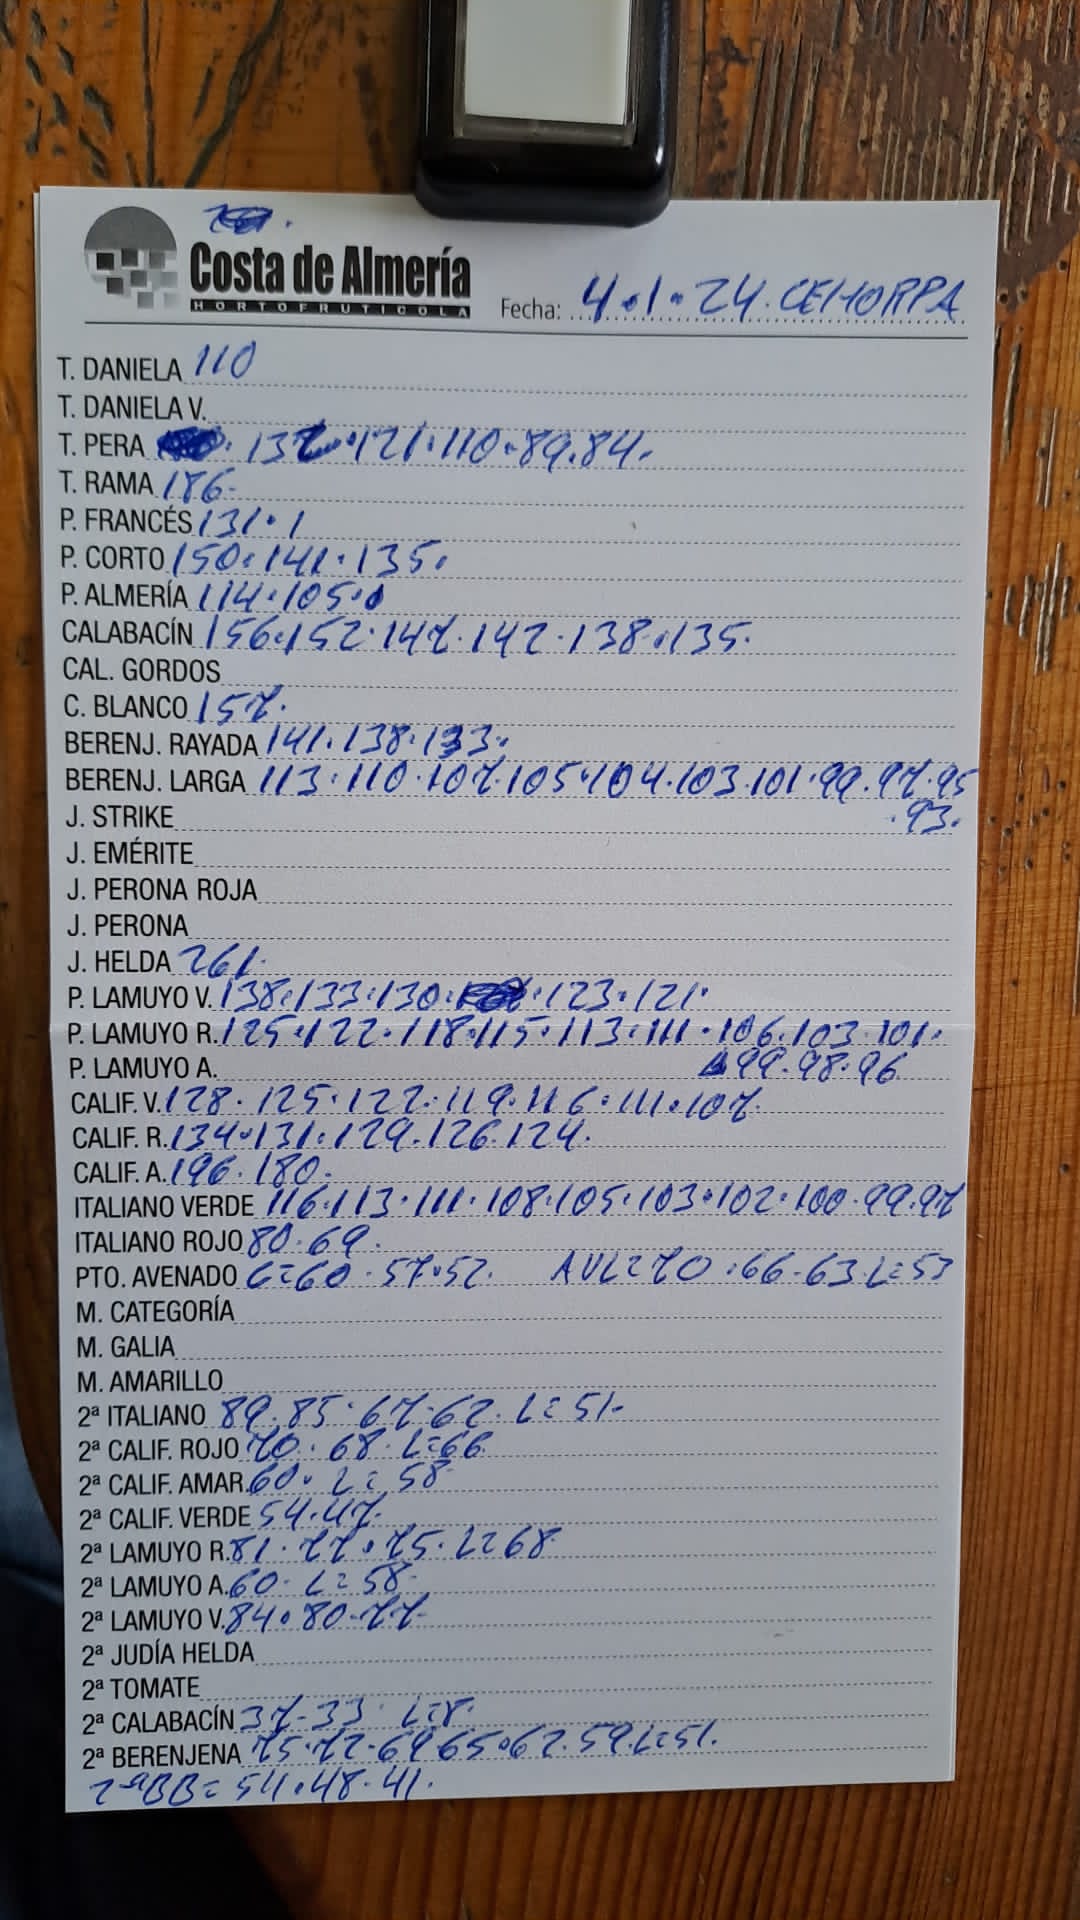 Costa de Almería
HORTOFRUTICOLA
Fecha: 4.1.24. CEHORPA
T. DANIELA 110
T. DANIELA V.
T. PERA 137.121.110.89.84.
T. RAMA 186.
P. FRANCÉS 131.1
P. CORTO 150.141.135.
P. ALMERÍA 114.105.
CALABACÍN 156.152.147.142.138.135.
CAL. GORDOS
C. BLANCO 157.
BERENJ. RAYADA 141.138.133.
BERENJ. LARGA 113.110.107.105.104.103.101.99.97.95
.93.
J. STRIKE
J. EMÉRITE
J. PERONA ROJA
J. PERONA
J. HELDA 261.
P. LAMUYO V. 138.133.130. .123.121.
P. LAMUYO R. 125.122.118.115.113.111.106.103.101.
P. LAMUYO A. 99.98.96
CALIF. V. 128.125.122.119.116.111.107.
CALIF. R. 134.131.129.126.124.
CALIF. A. 196.180.
ITALIANO VERDE 116.113.111.108.105.103.102.100.99.97
ITALIANO ROJO 80.69.
PTO. AVENADO C=60.57.52. AVL=70.66.63.L=53
M. CATEGORÍA
M. GALIA
M. AMARILLO
2ª ITALIANO 89.85.67.62. L=51-
2ª CALIF. ROJO 70.68.L=66
2ª CALIF. AMAR. 60. L=58
2ª CALIF. VERDE 54.47.
2ª LAMUYO R. 81.77.75.L=68
2ª LAMUYO A. 60. L=58
2ª LAMUYO V. 84.80.77-
2ª JUDÍA HELDA
2ª TOMATE
2ª CALABACÍN 37-33. L=8.
2ª BERENJENA 75.72-69 65.62.59.L=51.
2ªBB= 54.48.41.